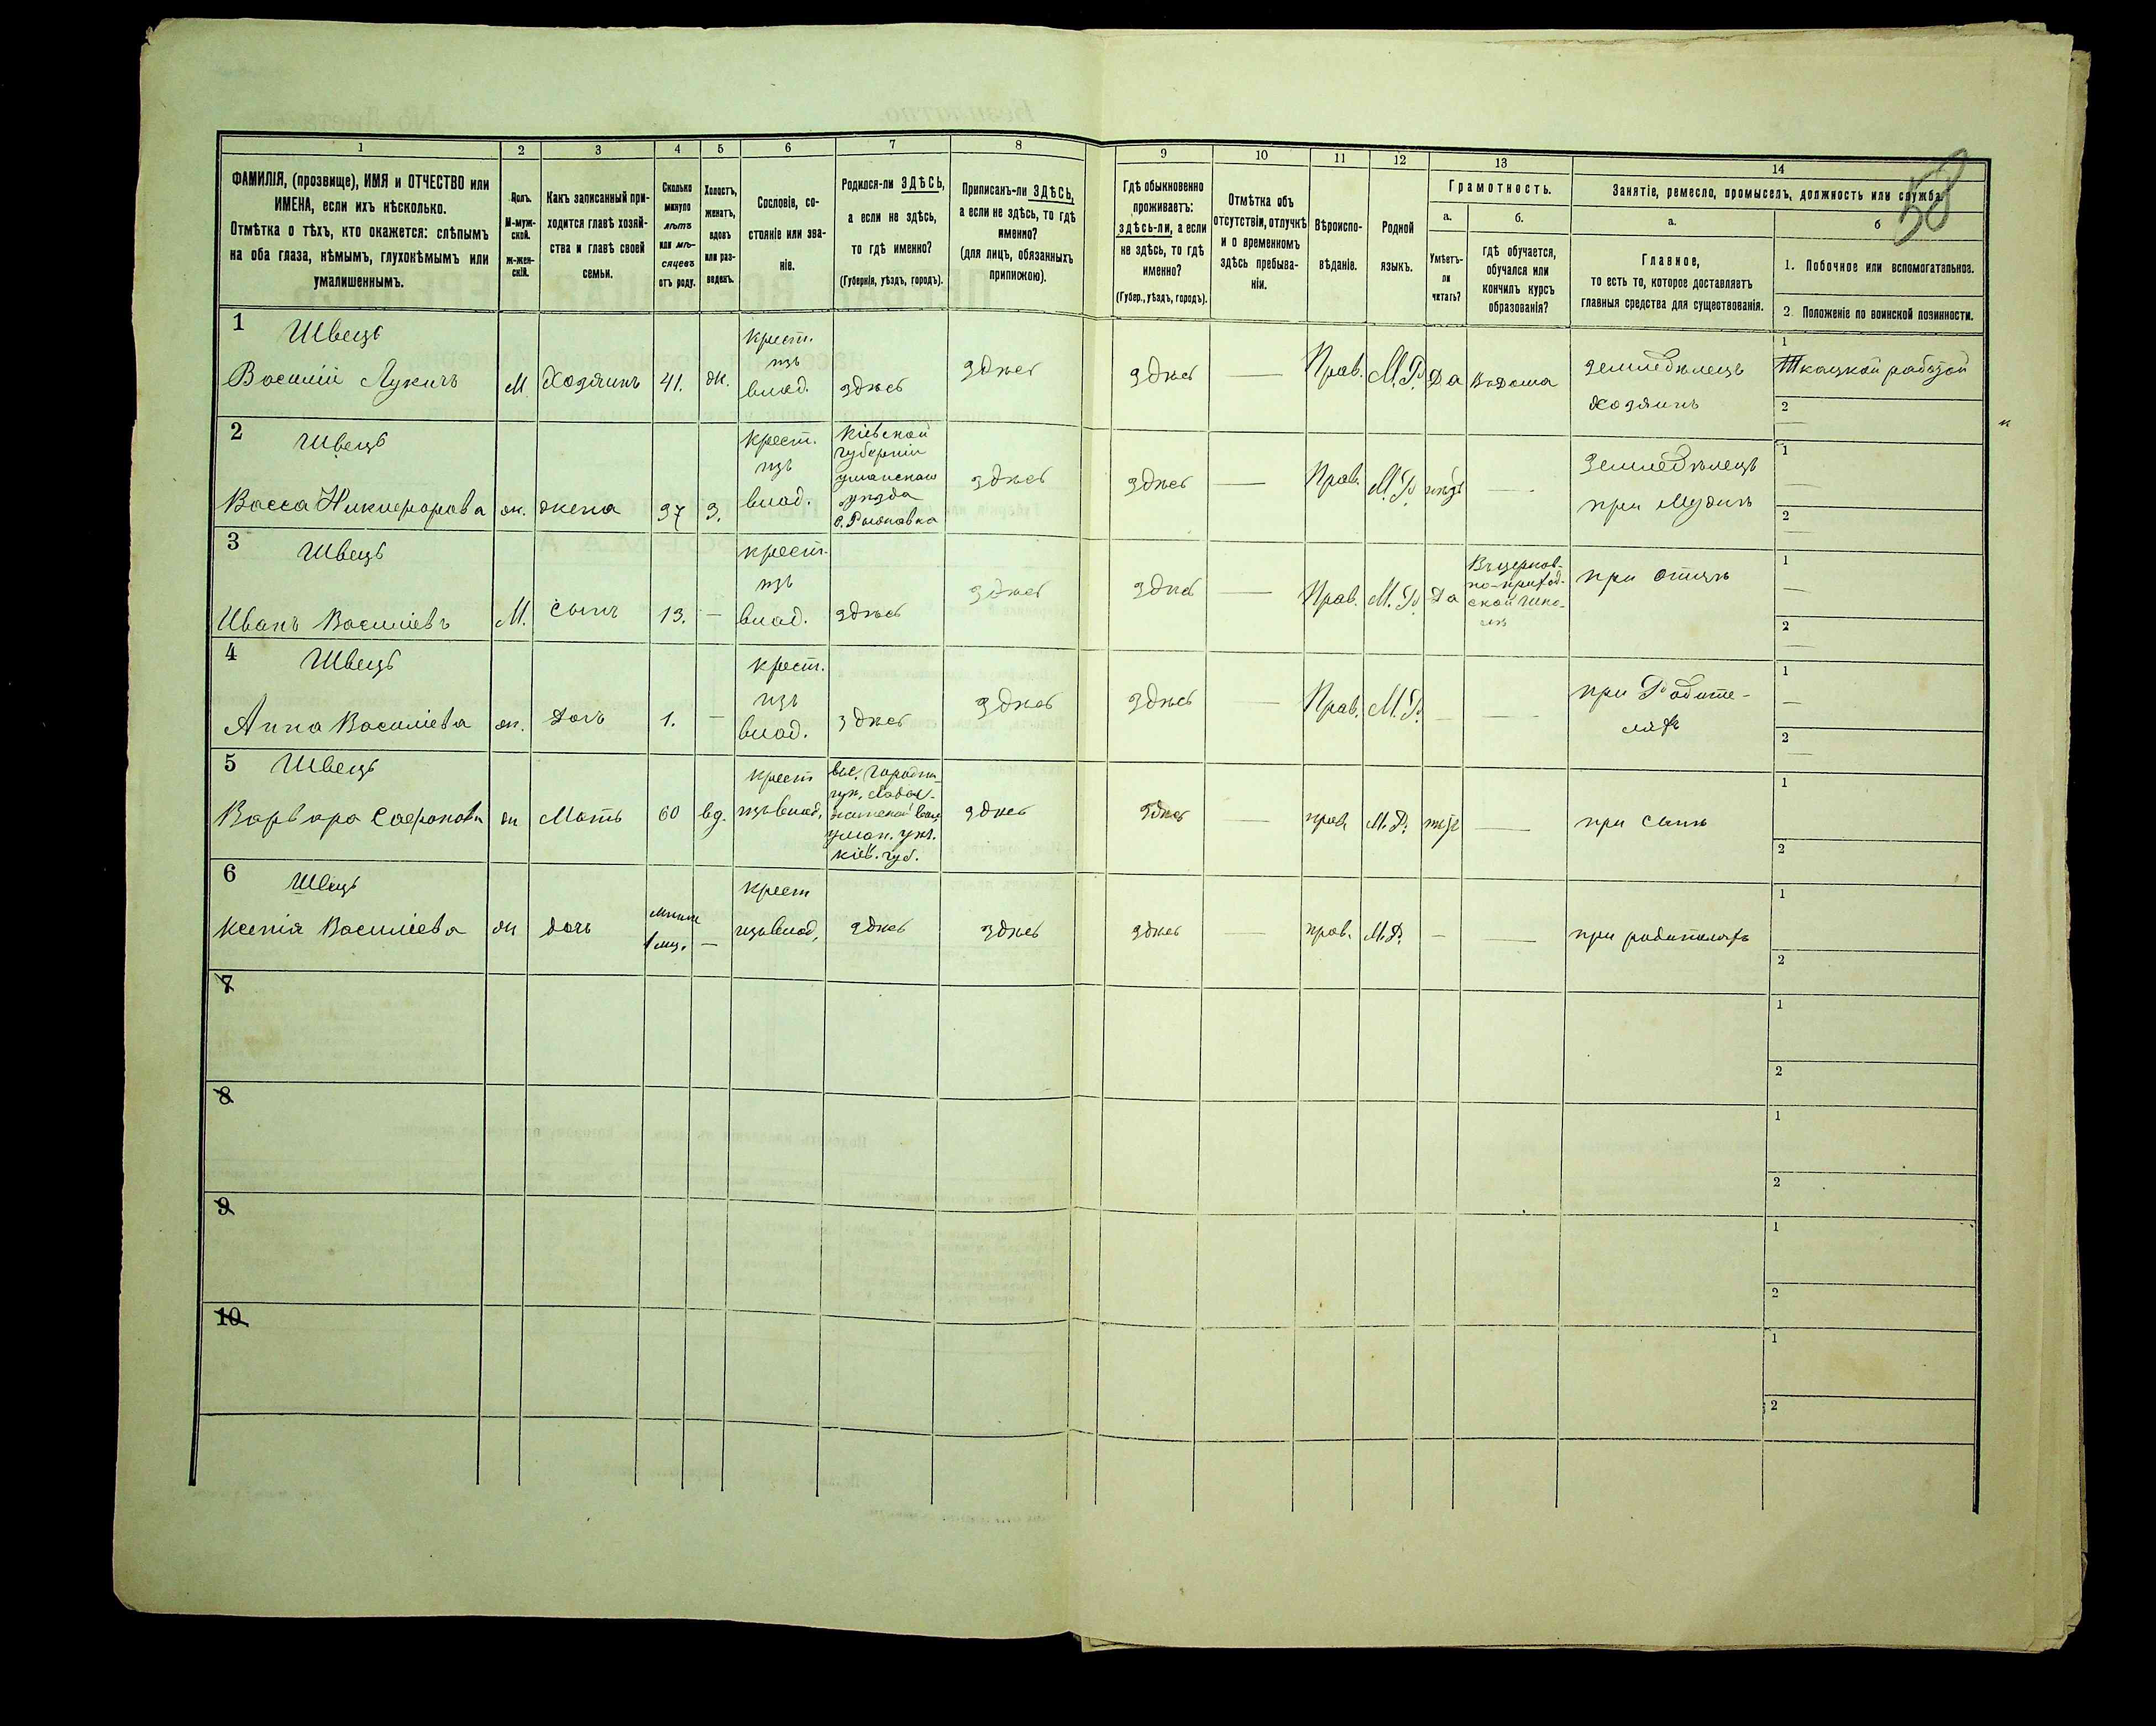 58
1 2 3 4 5 6 7 8 9 10 11 12 13 14
ФАМИЛІЯ, (прозвище), ИМЯ и ОТЧЕСТВО или
ИМЕНА, если ихъ нѣсколько.
Отмѣтка о тѣхъ, кто окажется: слѣпымъ
на оба глаза, нѣмымъ, глухонѣмымъ или
умалишеннымъ.
Полъ.
М-муж-
ской.
ж-жен-
скій.
Какъ записанный при-
ходится главѣ хозяй-
ства и главѣ своей
семьи.
Сколько
минуло
лѣтъ
или мѣ-
сяцевъ
отъ роду.
Холостъ,
женатъ,
вдовъ
или раз-
веденъ.
Сословіе, со-
стояніе или зва-
ніе.
Родился-ли ЗДѢСЬ,
а если не здѣсь,
то гдѣ именно?
(Губернія, уѣздъ, городъ).
Приписанъ-ли ЗДѢСЬ,
а если не здѣсь, то гдѣ
именно?
(для лицъ, обязанныхъ
припискою).
Гдѣ обыкновенно
проживаетъ:
здѣсь-ли, а если
не здѣсь, то гдѣ
именно?
(Губер., уѣздъ, городъ).
Отмѣтка объ
отсутствіи, отлучкѣ
и о временномъ
здѣсь пребыва-
ніи.
Вѣроиспо-
вѣданіе.
Родной
языкъ.
Грамотность.
а.
Умѣетъ-
ли
читать?
б.
гдѣ обучается,
обучался или
кончилъ курсъ
образованія?
Занятіе, ремесло, промыселъ, должность или служба.
а.
Главное,
то есть то, которое доставляетъ
главныя средства для существованія.
б
1. Побочное или вспомогательное.
2. Положеніе по воинской повинности.
1 Швецъ
Василій Лукичъ
М
Хозяинъ
41.
ж.
крест.
изъ
влад.
здѣсь
здѣсь
здѣсь
—
Прав.
М.Р.
Да
В. Дома
Земледѣлецъ
Хозяинъ
1
Ткацкой работой
2
2 Швецъ
Васса Никифорова
ж.
жена
37
З.
крест.
изъ
влад.
Кіевской
губерніи
уманскаго
уѣзда
здѣсь
здѣсь
—
Прав.
М.Р.
нѣтъ
—
Земледѣлецъ
при Мужѣ
1
2
3 Швецъ
Иванъ Василіевъ
М.
сынъ
13.
—
крест.
изъ
влад.
здѣсь
здѣсь
здѣсь
—
Прав.
М.Р.
Да
Въ церков-
но-приход-
ской шко-
лѣ
при отцѣ
1
2
4 Швецъ
Анна Василіева
ж.
дочь
1.
—
крест.
изъ
влад.
здѣсь
здѣсь
здѣсь
—
Прав.
М.Р.
—
—
при Родите-
ляхъ
1
2
5 Швецъ
Варвара
ж
Мать
60
вд.
крест
изъ влад.
уман. уѣз.
кіев. губ.
здѣсь
здѣсь
—
прав
М.Р.
нѣт
—
при сынѣ
1
2
6 Швецъ
Ксенія Василіева
ж
дочь
1 мѣс.
—
крест
изъ влад,
здѣсь
здѣсь
здѣсь
—
прав.
М.Р.
—
—
при родителяхъ
1
2
7
1
2
8
1
2
9
1
2
10
1
2